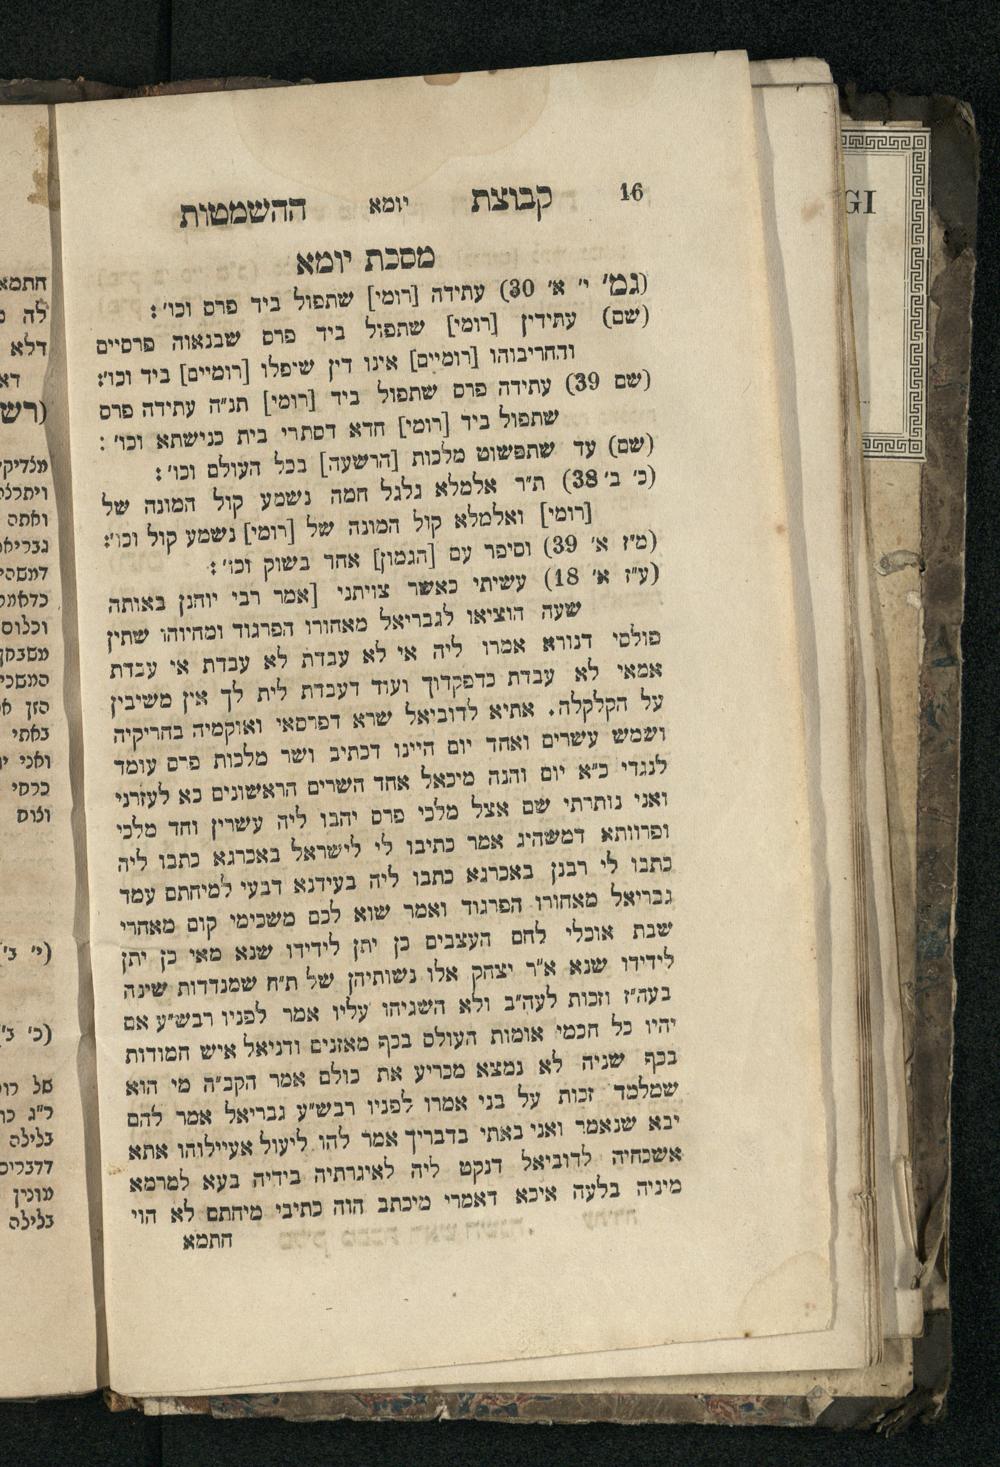 16 קבוצת יומא ההשמטות
מסכת יומא
(גמ' י' א' 30) עתידה [רומי] שתפול ביד פרס וכו':
(שם) עתידין [רומי] שתפול ביד פרס שבנאוה פרסיים
והחריבוהו [רומיים] אינו דין שיפלו [רומיים] ביד וכו':
(שם 39) עתידה פרס שתפול ביד [רומי] תנ"ה עתידה פרס
שתפול ביד [רומי] חדא דסתרי בית כנישתא וכו':
(שם) עד שתפשוט מלכות [הרשעה] בכל העולם וכו':
(כ' ב' 38) ת"ר אלמלא גלגל חמה נשמע קול המונה של
[רומי] ואלמלא קול המונה של [רומי] נשמע קול וכו':
(מ"ז א' 39) וסיפר עם [הגמון] אחד בשוק וכו':
(ע"ז א' 18) עשיתי כאשר צויתני [אמר רבי יוחנן באותה
שעה הוציאו לגבריאל מאחורו הפרגוד ומחיוהו שתין
פולסי דנורא אמרו ליה אי לא עבדת לא עבדת אי עבדת
אמאי לא עבדת כדפקדוך ועוד דעבדת לית לך אין משיבין
על הקלקלה. אתיא לדוביאל שרא דפרסאי ואוקמיה בחריקיה
ושמש עשרים ואחד יום היינו דכתיב ושר מלכות פרס עומד
לנגדי כ"א יום והנה מיכאל אחד השרים הראשונים בא לעזרני
ואני נותרתי שם אצל מלכי פרס יהבו ליה עשרין וחד מלכי
ופרוותא דמשהיג אמר כתיבו לי לישראל באכרגא כתבו ליה
כתבו לי רבנן באכרגא כתבו ליה בעידנא דבעי למיחתם עמד
גבריאל מאחורו הפרגוד ואמר שוא לכם משכימי קום מאחרי
שבת אוכלי לחם העצבים כן יתן לידידו שנא מאי כן יתן
לידידו שנא א"ר יצחק אלו נשותיהן של ת"ח שמנדדות שינה
בעה"ז וזכות לעה"ב ולא השגיחו עליו אמר לפניו רבש"ע אם
יהיו כל חכמי אומות העולם בכף מאזנים ודניאל איש חמודות
בכף שניה לא נמצא מכריע את כולם אמר הקב"ה מי הוא
שמלמד זכות על בני אמרו לפניו רבש"ע גבריאל אמר להם
יבא שנאמר ואני באתי בדבריך אמר להו ליעול אעיילוהו אתא
אשכחיה לדוביאל דנקט ליה לאיגרתיה בידיה בעא למרמא
מיניה בלעה איכא דאמרי מיכתב הוה כתיבי מיחתם לא הוי
חתמא